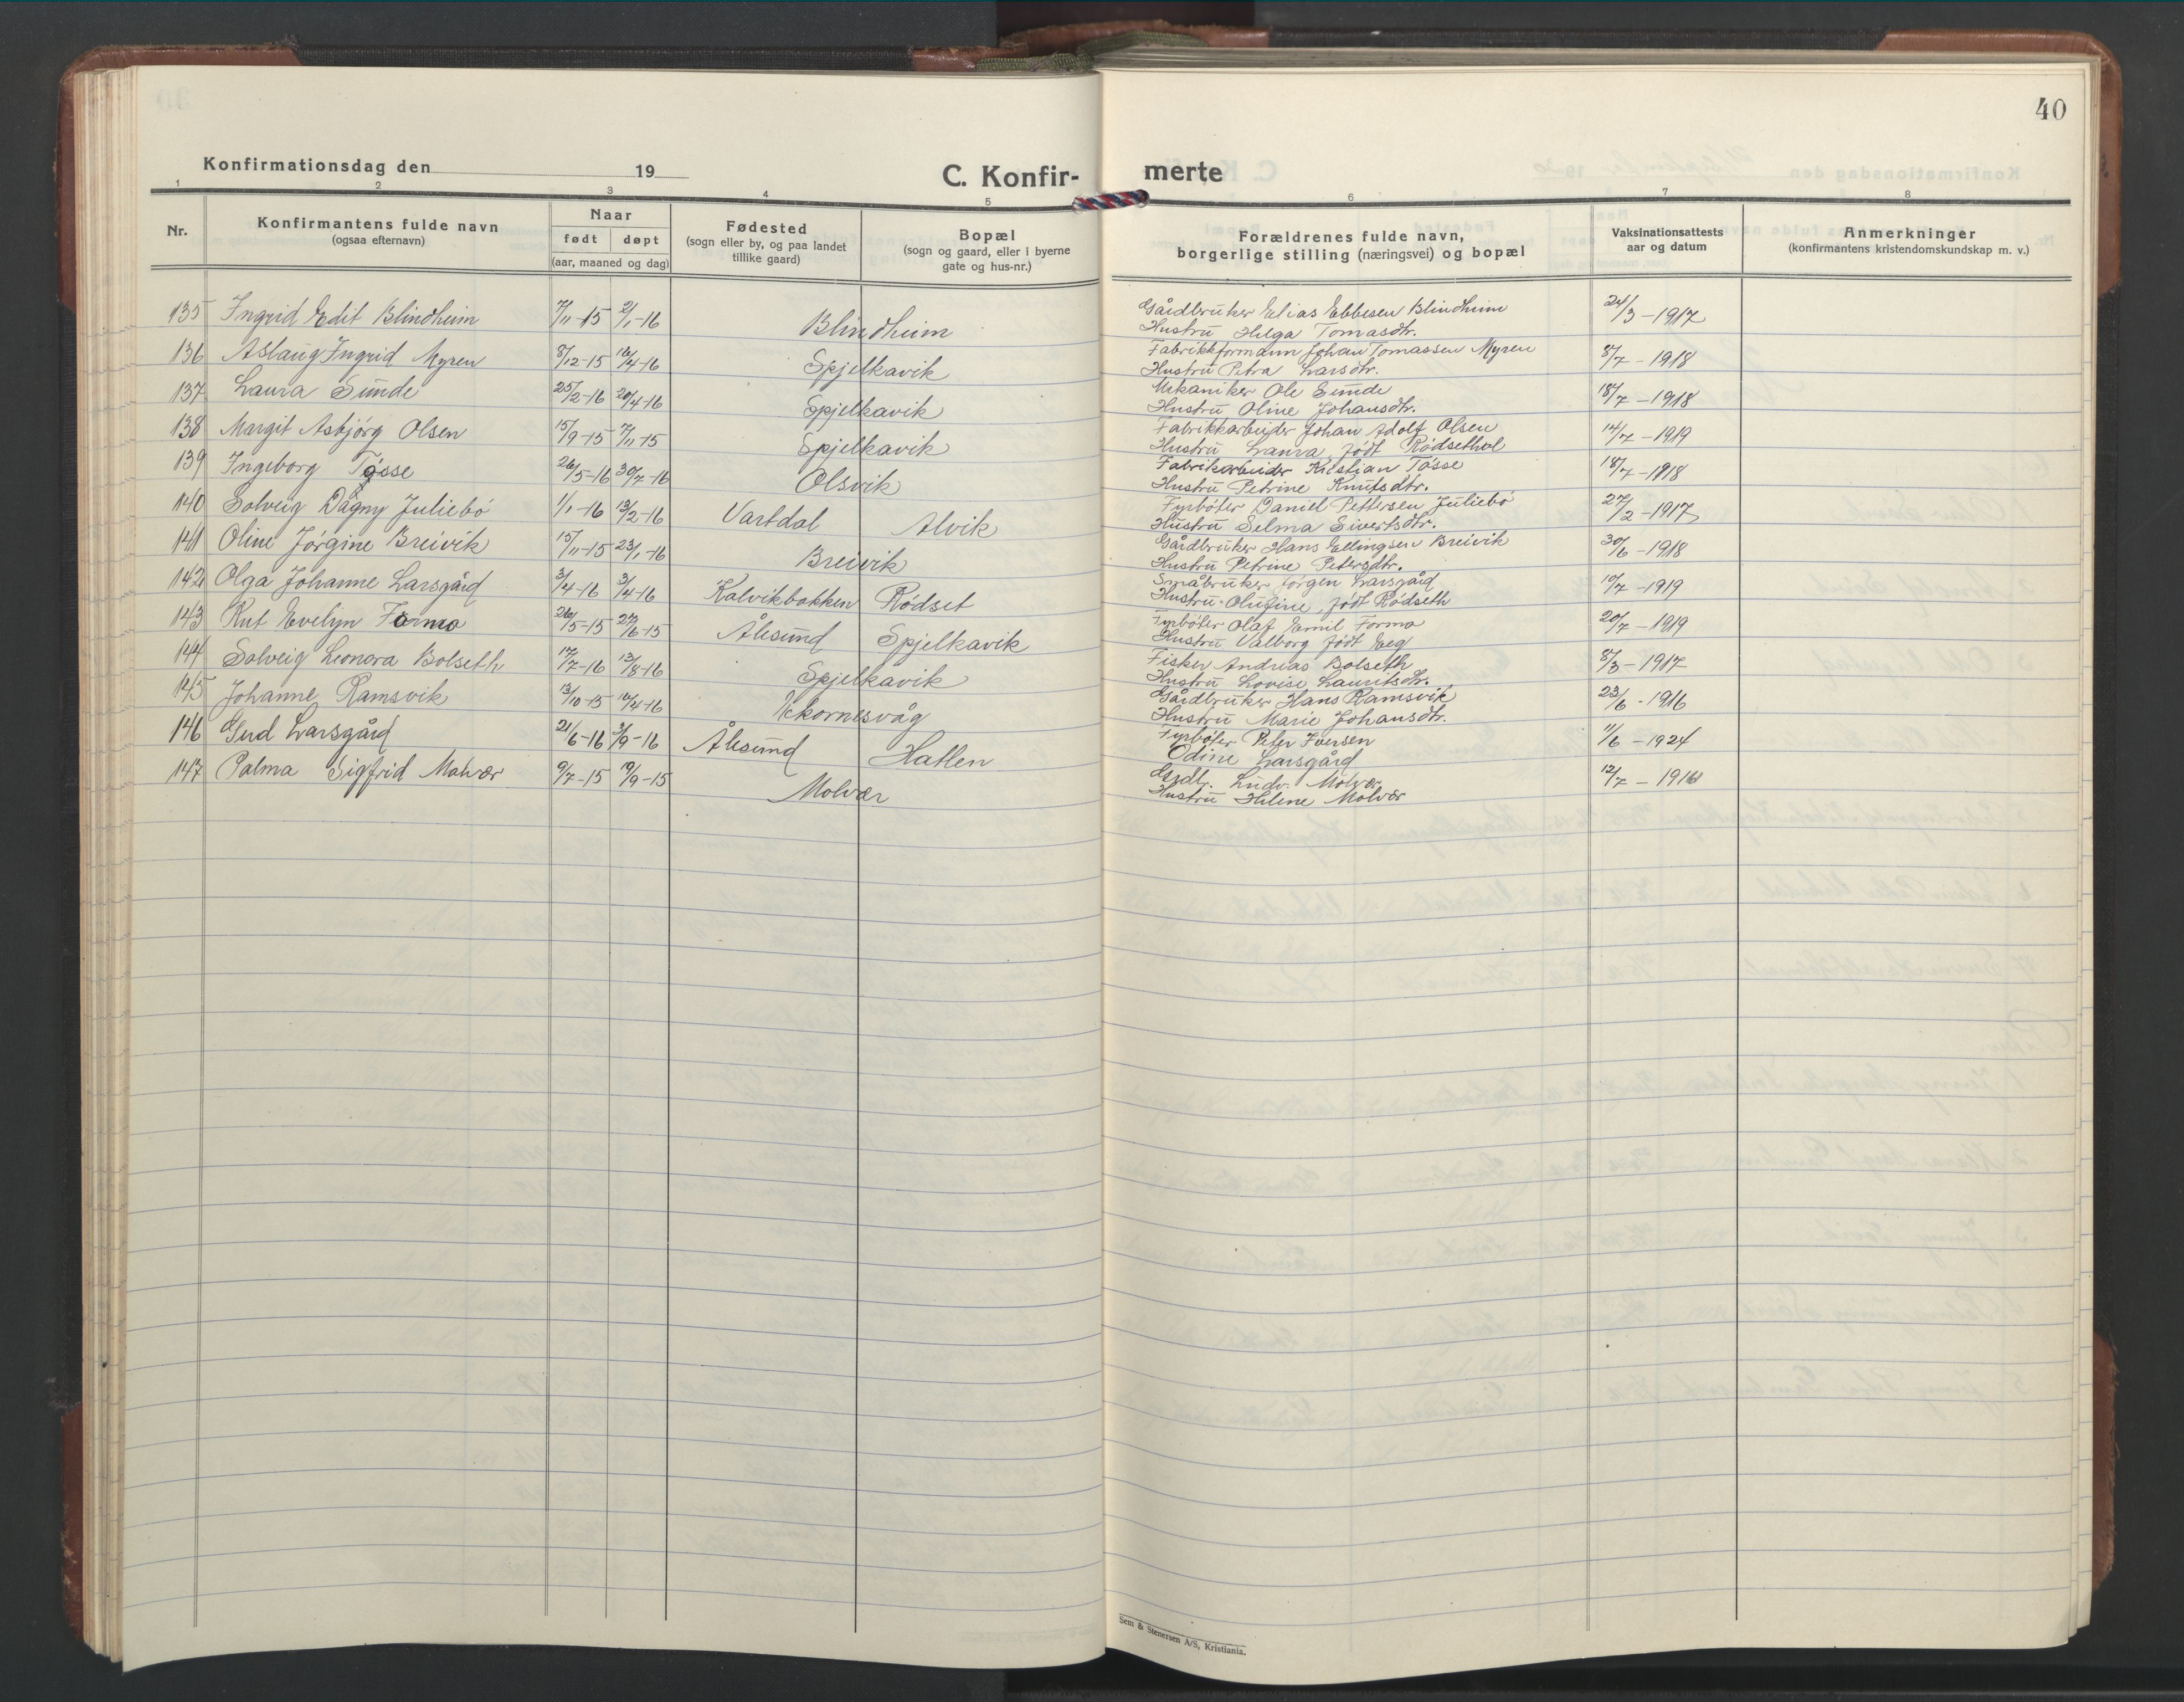 40
Konfirmationsdag den 19
C. Konfir-
merte
1 2 3 4 5 6 7 8
Nr.
Konfirmantens fulde navn
(ogsaa efternavn)
Naar
født døpt
(aar, maaned og dag)
Fødested
(sogn eller by, og paa landet
tillike gaard)
Bopæl
(sogn og gaard, eller i byerne
gate og hus-nr.)
Forældrenes fulde navn,
borgerlige stilling (næringsvei) og bopæl
Vaksinationsattests
aar og datum
Anmerkninger
(konfirmantens kristendomskundskap m. v.)
135 Ingrid Edit Blindheim 7/11-15 2/1-16 Blindheim Gårdbruker Elias Ebbesen Blindheim 24/3-1917
Hustru Helga Tomasdtr.
136 Aslaug Ingrid Myren 8/12-15 16/4-16 Spjelkavik Fabrikkformann Johan Tomassen Myren 8/7-1918
Hustru Petra Larsdtr.
137 Laura Sunde 25/2-16 20/4-16 Spjelkavik Mekaniker Ole Sunde 18/7-1918
Hustru Oline Johansdtr.
138 Margit Asbjørg Olsen 15/9-15 7/11-15 Spjelkavik Fabrikkarbeider Johan Adolf Olsen 14/7-1919
Hustru Laura, født Rødsethol
139 Ingeborg Tøsse 26/5-16 30/7-16 Olsvik Fabrikarbeider Kristian Tøsse 18/7-1918
Hustru Petrine Knutsdtr.
140 Solveig Dagny Juliebø 1/1-16 13/2-16 Vartdal Alvik Fyrbøter Daniel Pettersen Juliebø 27/2-1917
Hustru Selma Sivertsdtr.
141 Oline Jørgine Breivik 15/11-15 23/1-16 Breivik Gårdbruker Hans Ellingsen Breivik 30/6-1918
Hustru Petrine Petersdtr.
142 Olga Johanne Larsgård 3/4-16 3/4-16 Kalvikbakken Rødset Småbruker Jørgen Larsgård 10/7-1919
Hustru Olufine, født Rødseth
143 Rut Evelyn Formo 26/5-15 27/6-15 Ålesund Spjelkavik Fyrbøter Olaf Emil Formo 20/7-1919
Hustru Valborg født Eeg
144 Solveig Leonora Bolseth 17/7-16 13/8-16 Spjelkavik Fisker Andreas Bolseth 8/3-1917
Hustru Lovise Lauritsdtr.
145 Johanne Ramsvik 13/10-15 16/4-16 Ikornesvåg Gårdbruker Hans Ramsvik 23/6-1916
Hustru Marie Johansdtr.
146 Gud Larsgård 21/6-16 3/9-16 Ålesund Hatlen Fyrbøter Peter Iversen 11/6-1924
Odine Larsgård
147 Palma Sigfrid Molvær 9/7-15 19/9-15 Molvær Gardbr. Ludv. Molvær 12/7-1916
Hustru Helene Molvær
Sem & Stenersen A/S, Kristiania.